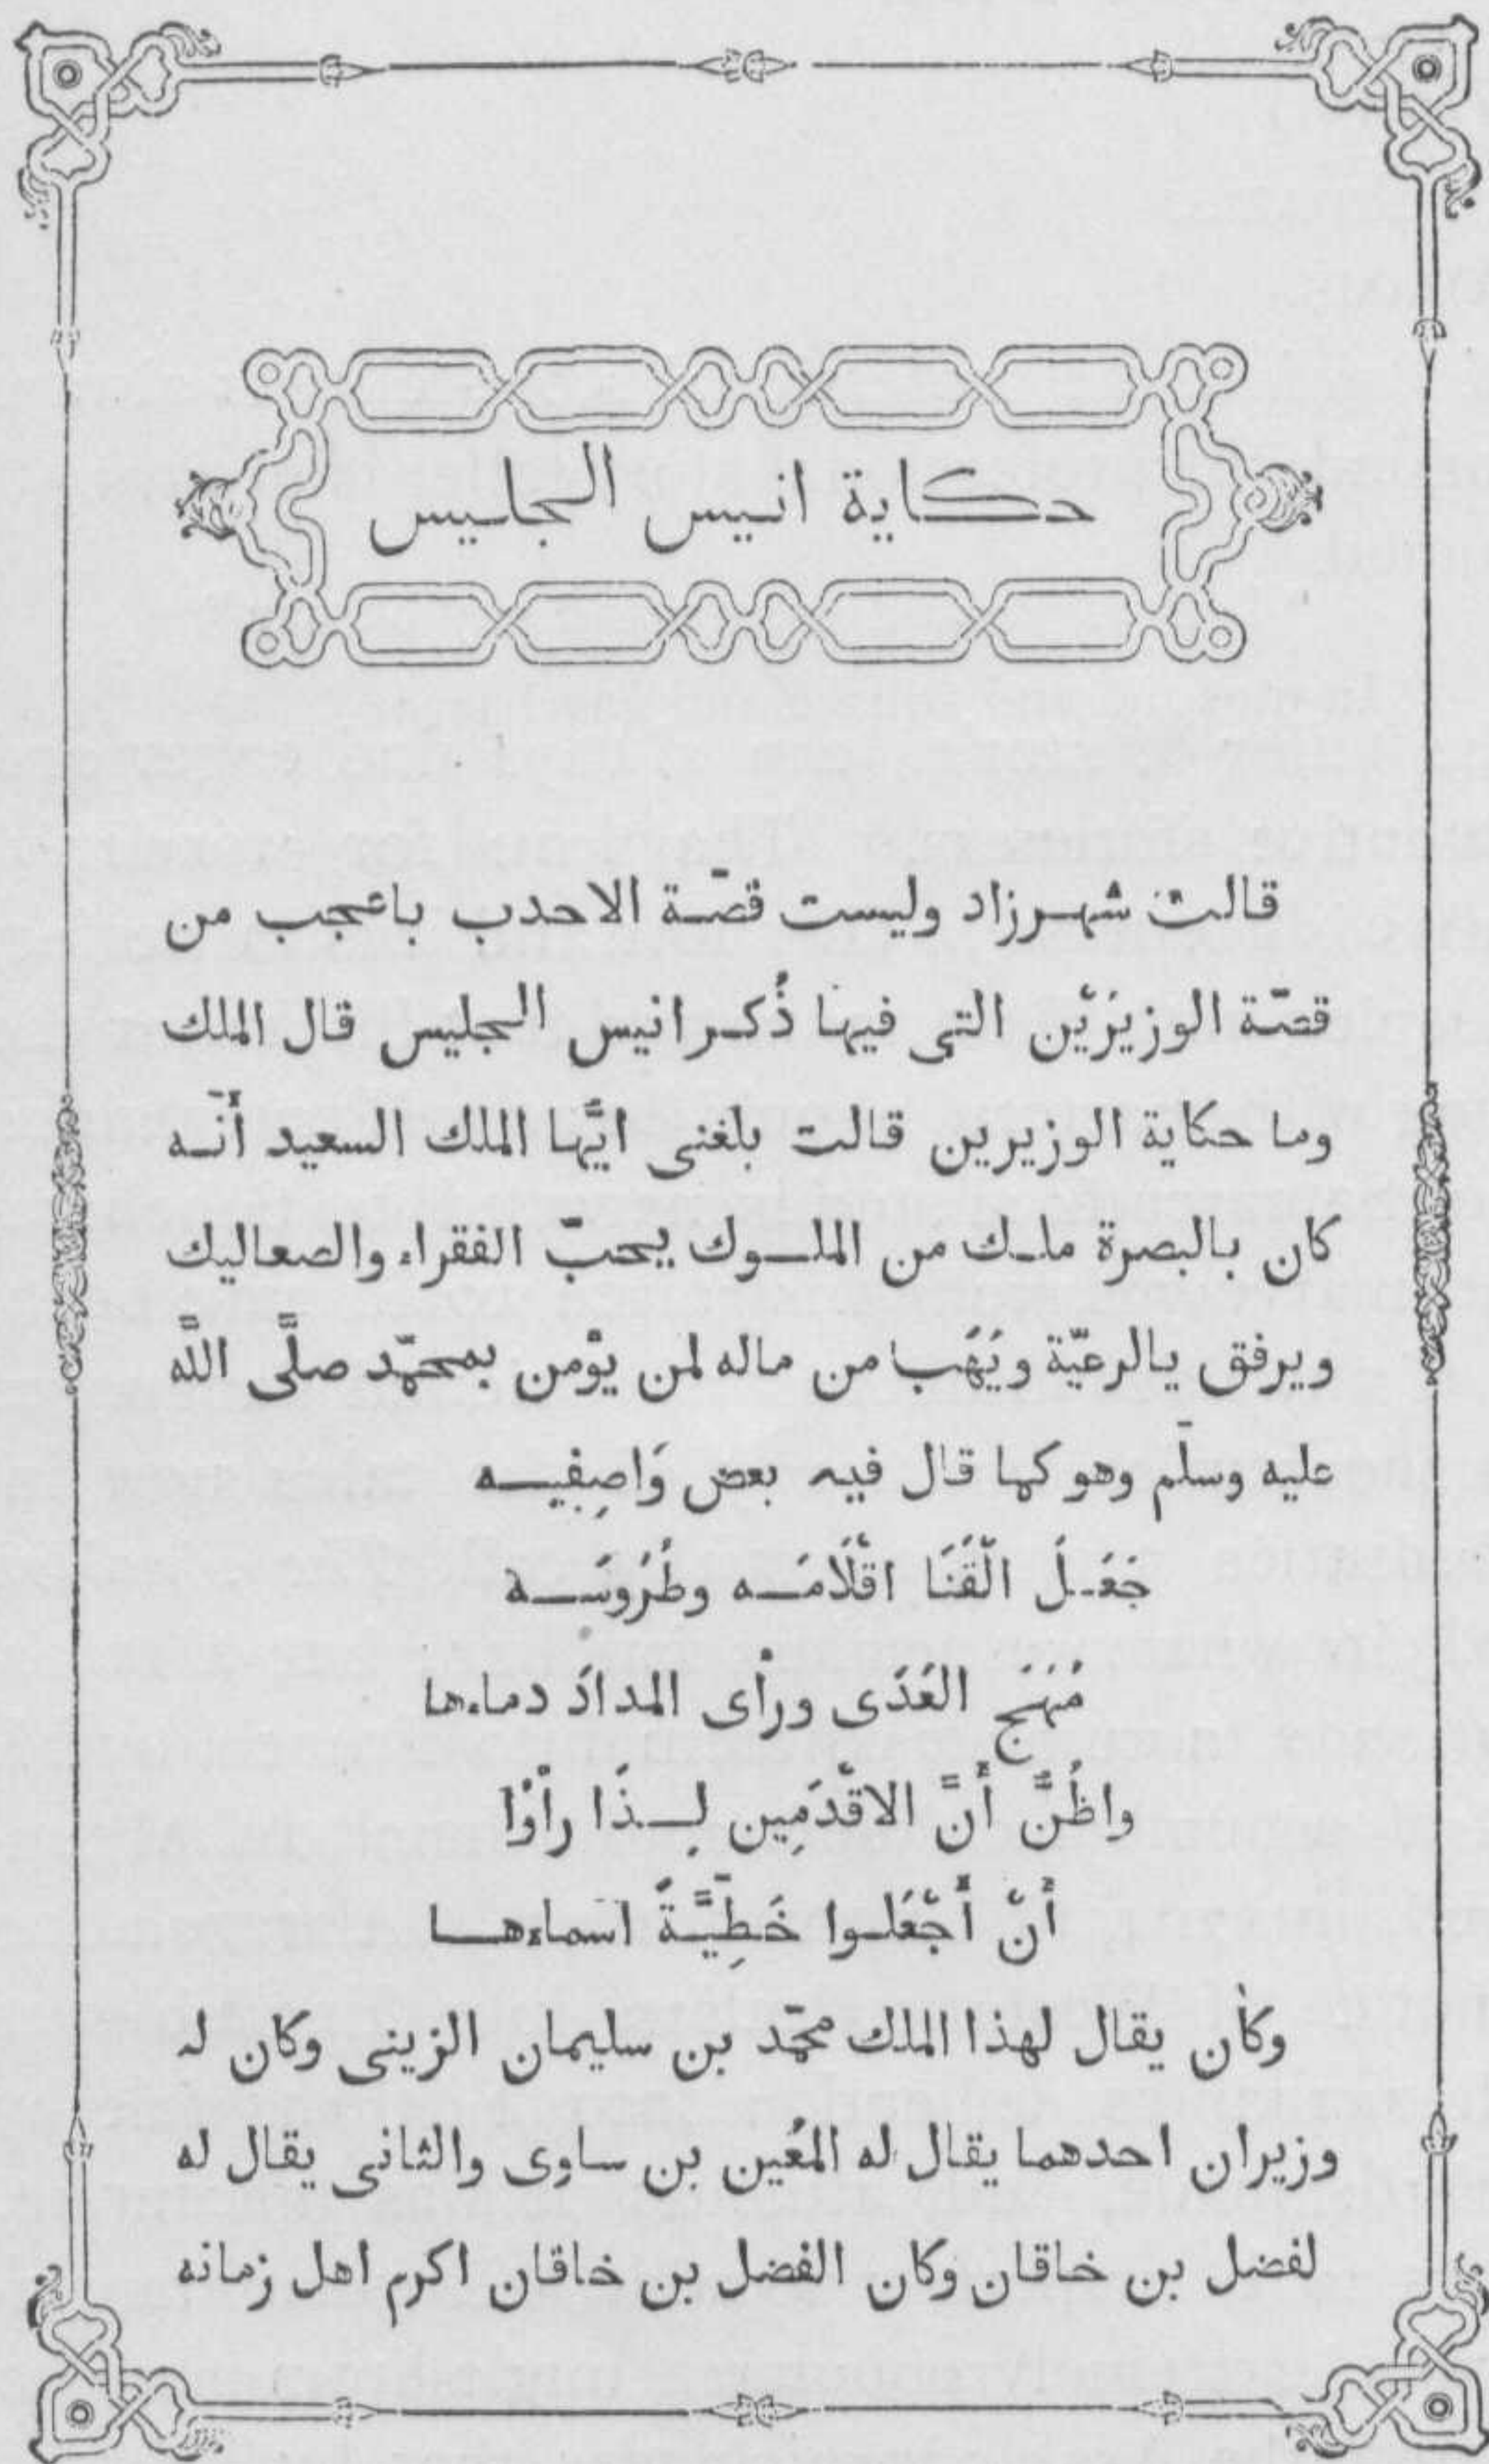 حكاية انيس الجليس
قالت شهرزاد وليست قصّة الاحدب باعجب من
قصّة الوزيرَيْن التى فيها ذُكر انيس الجليس قال الملك
وما حكاية الوزيرين قالت بلغنى ايَّها الملك السعيد أنّه
كان بالبصرة ملك من الملوك يحبّ الفقراء والصعاليك
ويرفق يالرعيّة ويَهَب من ماله لمن يوْمن بمحمّد صلَّى اللَّه
عليه وسلّم وهو كما قال فيه بعض وَاصِفِيه
جَعَلَ الْقَنَا اقْلَامَه وطُرُوسَه
مُهَجَ العَدَى ورأى المدادَ دماءها
واظُنَّ أَنَّ الاقْدَمِين لِذَا رأَوْا
أَنْ أَجْعَلوا خَطِّيَّةً اسماءها
وكان يقال لهذا الملك محمّد بن سليمان الزينى وكان له
وزيران احدهما يقال له المُعين بن ساوى والثانى يقال له
لفضل بن خاقان وكان الفضل بن خاقان اكرم اهل زمانه